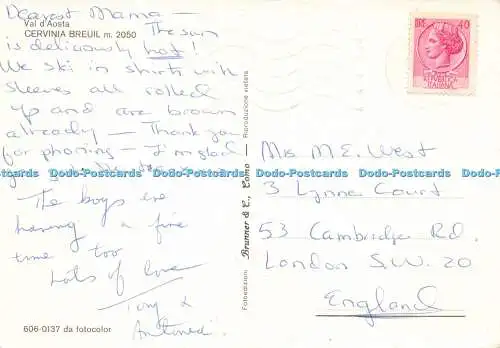 Dearest Mama —
Val d'Aosta
CERVINIA BREUIL m. 2050
The sun
is deliciously hot!
We ski in shirts with
sleeves all rolled
up and are brown
already — Thank you
for phoning — I'm glad
Dodo-Postcards Dodo-Postcards Dodo-Postcards Dodo-Postcards Dodo-Postcards
The boys are
having a fine
time too
Lots of love
Tony &
606-0137 da fotocolor
Fotoedizioni Brunner & C., Como - Riproduzione vietata
LIRE 40
ITALIANE
M.E. West
3 Lynne Court
53 Cambridge Rd.
London S.W. 20
England